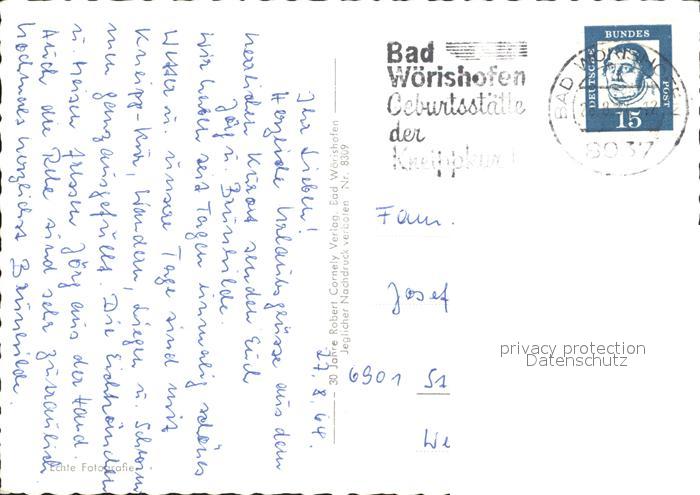 27.8.64.
Ihr Lieben!
Herzliche Urlaubsgrüsse aus dem
herrlichen Kurort senden Euch
Jörg u. Brünhilde.
Wir haben seit Tagen einmalig schönes
Wetter u. unsere Tage sind mit
Kneipp-Kur, Wandern, Liegen u. Schwim
men ganz ausgefüllt. Die Eichhörnchen
u. Meisen fressen Jörg aus der Hand.
Auch die Rehe sind sehr zutraulich.
Nochmals herzlichst Brünhilde.
Echte Fotografie
30 Jahre Robert Cornely Verlag, Bad Wörishofen
Jeglicher Nachdruck verboten Nr. 8309
Bad
Wörishofen
Geburtsstätte
der
Kneippkur!
BAD WÖRISHOFEN
8037
DEUTSCHE
BUNDES
POST
15
Fam.
Josef
6901 St
We
privacy protection
Datenschutz